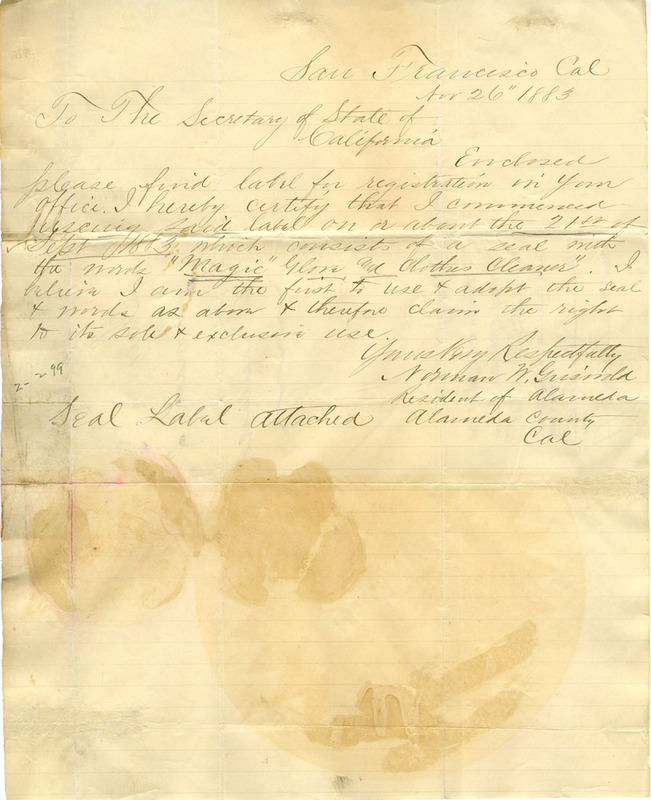 San Francisco Cal
Nov 26" 1883
To The Secretary of State of
California
Enclosed
please find label for registration in your
office. I hereby certify that I commenced
useing said label on or about the 21st of
Sept 1883 which consists of a seal with
the words "Magic" Glove and Clothes Cleaner". I
believe I am the first to use & adopt the seal
& words as above & therefore claim the right
to its sole & exclusive use.
Yours Very Respectfully
Norman W. Griswold
Resident of Alameda
Seal Label attached Alameda County
Cal